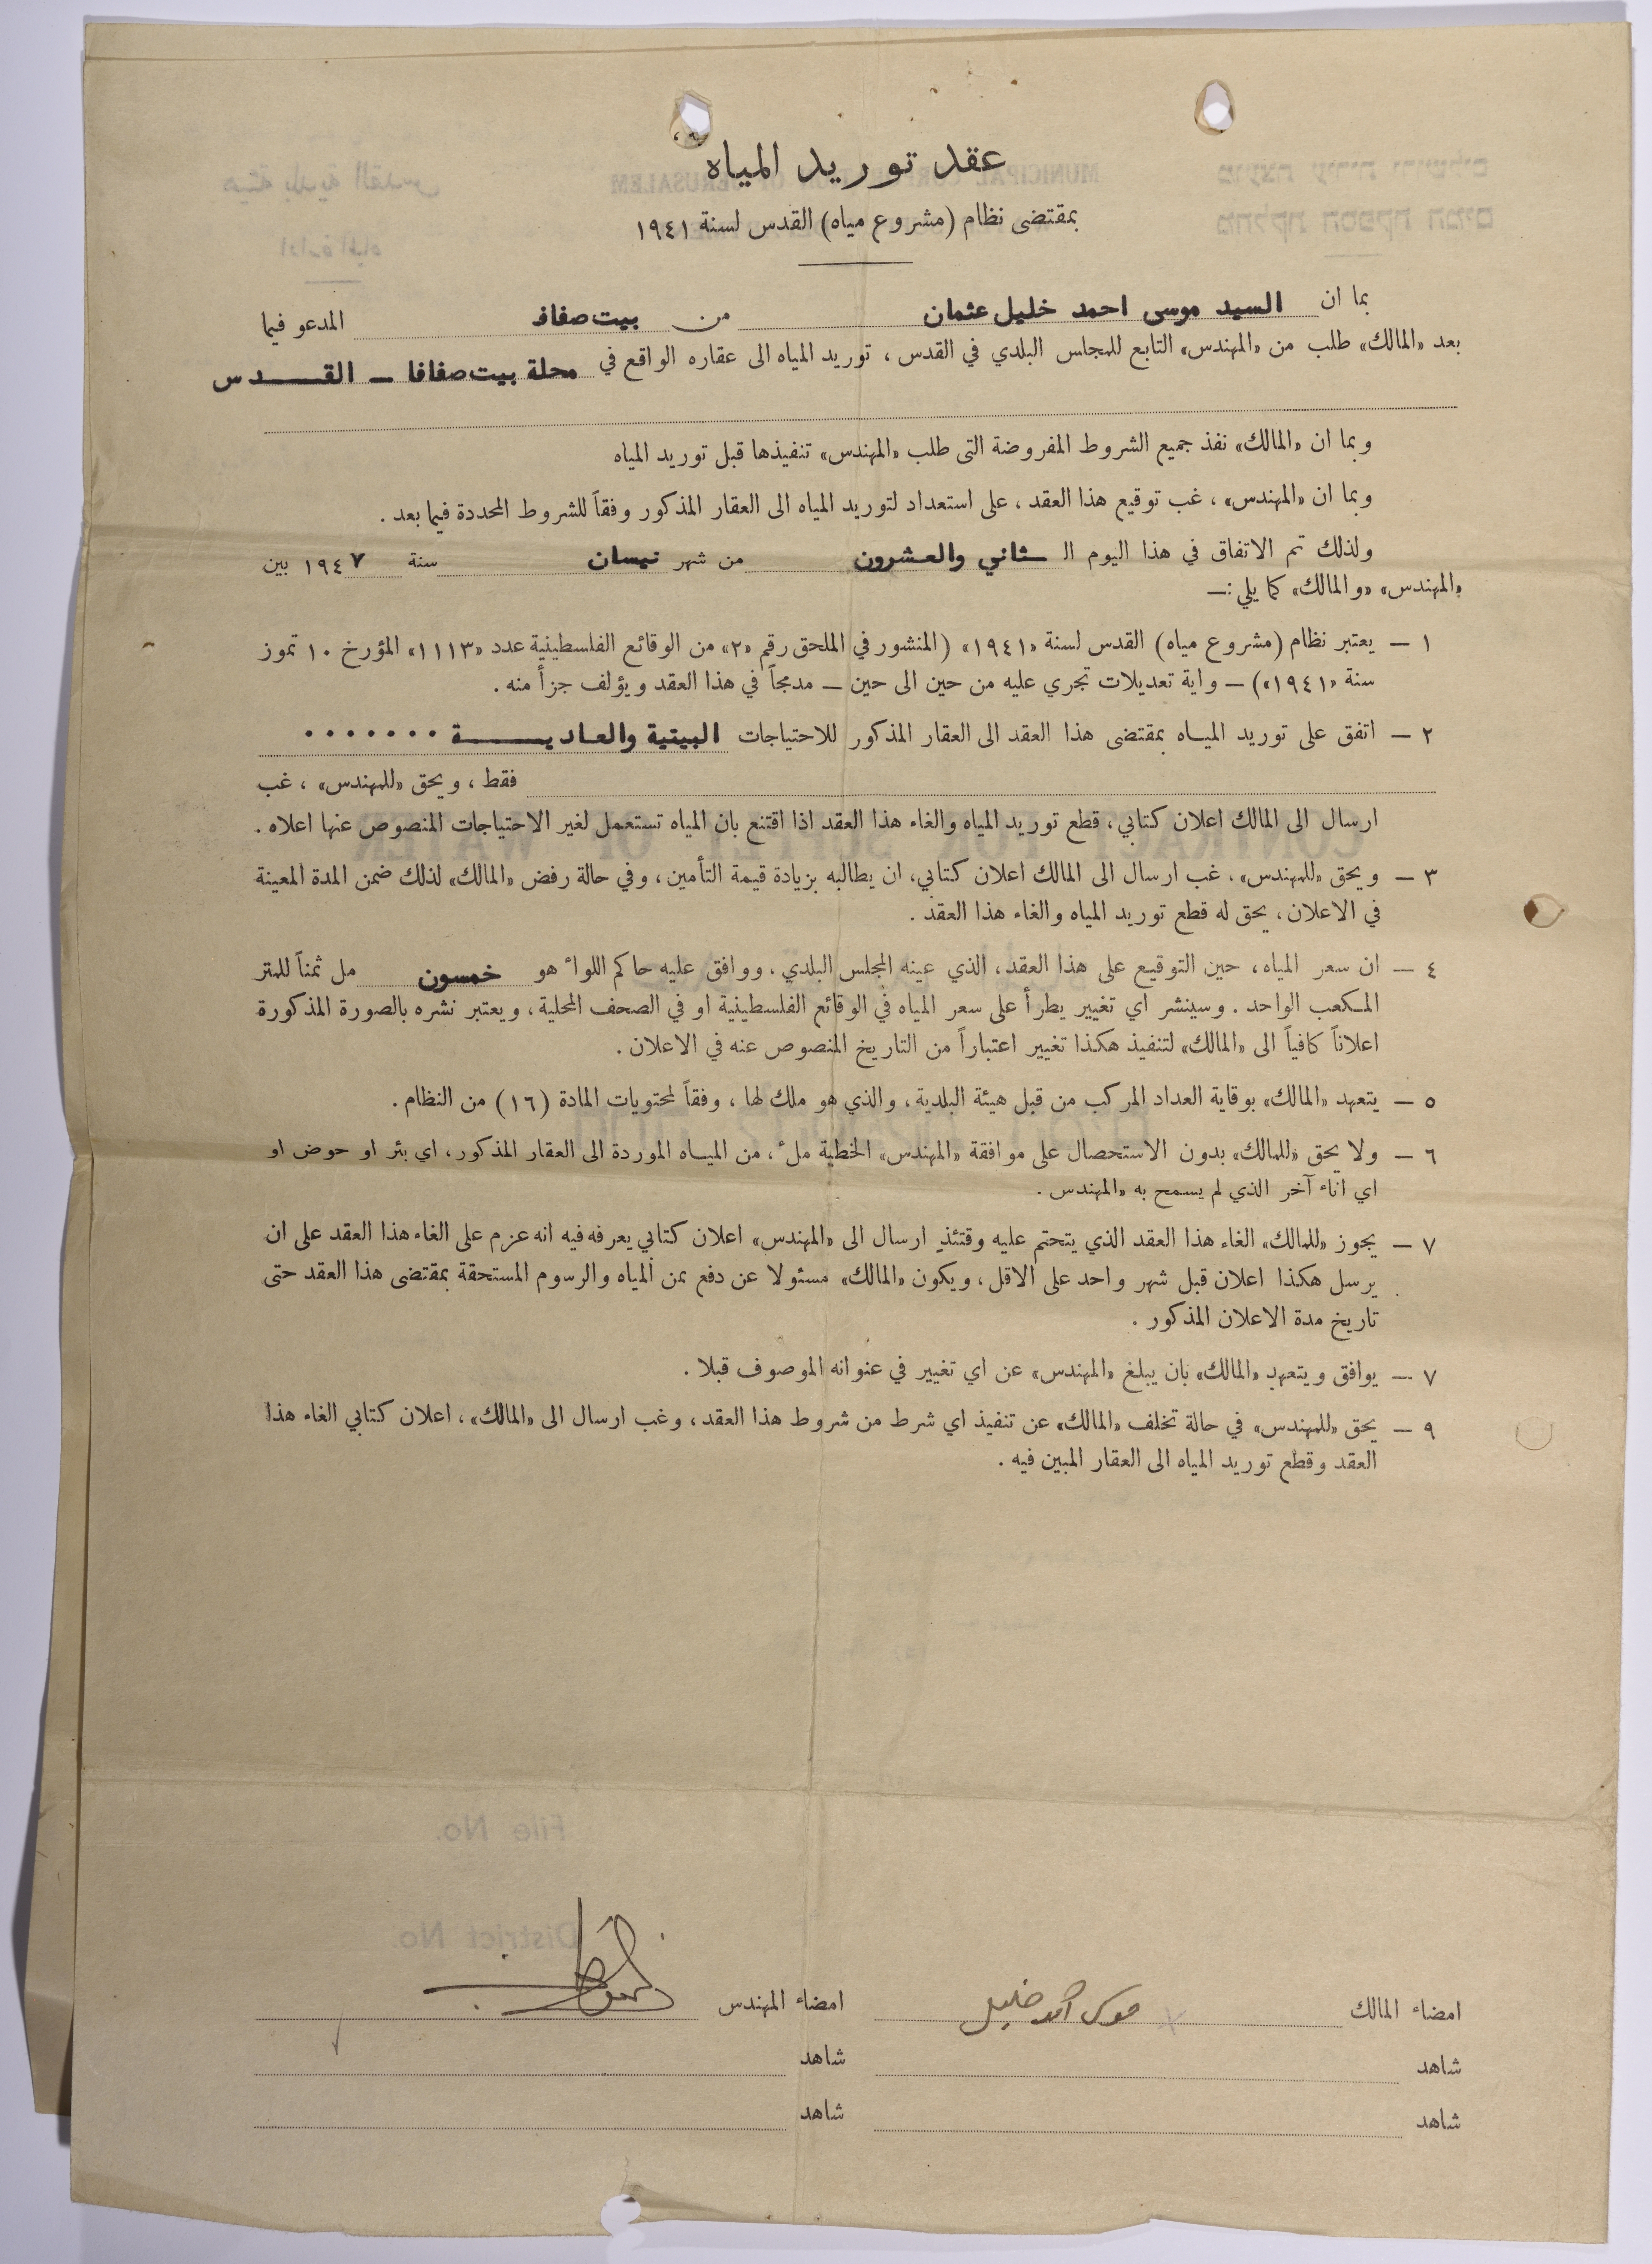 عقد توريد المياه
بمقتضى نظام (مشروع مياه) القدس لسنة ١٩٤١
بما ان السيد موسى احمد خليل عثمان من بيت صفافا المدعو فيما
بعد «المالك» طلب من «المهندس» التابع للمجلس البلدي في القدس، توريد المياه الى عقاره الواقع في محلة بيت صفافا – القــــدس
وبما ان «المالك» نفذ جميع الشروط المفروضة التى طلب «المهندس» تنفيذها قبل توريد المياه
وبما ان «المهندس»، غب توقيع هذا العقد، على استعداد لتوريد المياه الى العقار المذكور وفقاً للشروط المحددة فيما بعد.
ولذلك تم الاتفاق في هذا اليوم الـ ـثاني والعشرون من شهر نيسان سنة ١٩٤٧ بين
«المهندس» «والمالك» كما يلي:—
١ — يعتبر نظام (مشروع مياه) القدس لسنة «١٩٤١» (المنشور في الملحق رقم «٢» من الوقائع الفلسطينية عدد «١١١٣» المؤرخ ١٠ تموز
سنة «١٩٤١») — واية تعديلات تجري عليه من حين الى حين — مدمجاً في هذا العقد ويؤلف جزأ منه.
٢ — اتفق على توريد الميـاه بمقتضى هذا العقد الى العقار المذكور للاحتياجات البيتية والعاديـــــة . . . . . . .
فقط، ويحق «للمهندس»، غب
ارسال الى المالك اعلان كتابي، قطع توريد المياه والغاء هذا العقد اذا اقتنع بان المياه تستعمل لغير الاحتياجات المنصوص عنها اعلاه.
٣ — ويحق «للمهندس»، غب ارسال الى المالك اعلان كتابي، ان يطالبه بزيادة قيمة التأمين، وفي حالة رفض «المالك» لذلك ضمن المدة المعينة
في الاعلان، يحق له قطع توريد المياه والغاء هذا العقد.
٤ — ان سعر المياه، حين التوقيع على هذا العقد، الذي عينه المجلس البلدي، ووافق عليه حاكم اللواء هو خمسون مل ثمناً للمتر
المكعب الواحد. وسينشر اي تغيير يطرأ على سعر المياه في الوقائع الفلسطينية او في الصحف المحلية، ويعتبر نشره بالصورة المذكورة
اعلاناً كافياً الى «المالك» لتنفيذ هكذا تغيير اعتباراً من التاريخ المنصوص عنه في الاعلان.
٥ — يتعهد «المالك» بوقاية العداد المركب من قبل هيئة البلدية، والذي هو ملك لها، وفقاً لمحتويات المادة (١٦) من النظام.
٦ — ولا يحق «للمالك» بدون الاستحصال على موافقة «المهندس» الخطية ملء، من الميـاه الموردة الى العقار المذكور، اي بئر او حوض او
اي اناء آخر الذي لم يسمح به «المهندس.
٧ — يجوز «للمالك» الغاء هذا العقد الذي يتحتم عليه وقتئذ ارسال الى «المهندس» اعلان كتابي يعرفه فيه انه عزم على الغاء هذا العقد على ان
يرسل هكذا اعلان قبل شهر واحد على الاقل، ويكون «المالك» مسئولا عن دفع ثمن المياه والرسوم المستحقة بمقتضى هذا العقد حتى
تاريخ مدة الاعلان المذكور.
٧ — يوافق ويتعهد «المالك» بان يبلغ «المهندس» عن اي تغيير في عنوانه الموصوف قبلا.
٩ — يحق «للمهندس» في حالة تخلف «المالك» عن تنفيذ اي شرط من شروط هذا العقد، وغب ارسال الى «المالك»، اعلان كتابي الغاء هذا
العقد وقطع توريد المياه الى العقار المبين فيه.
امضاء المالك موسى احمد خليل امضاء المهندس
شاهد شاهد
شاهد شاهد